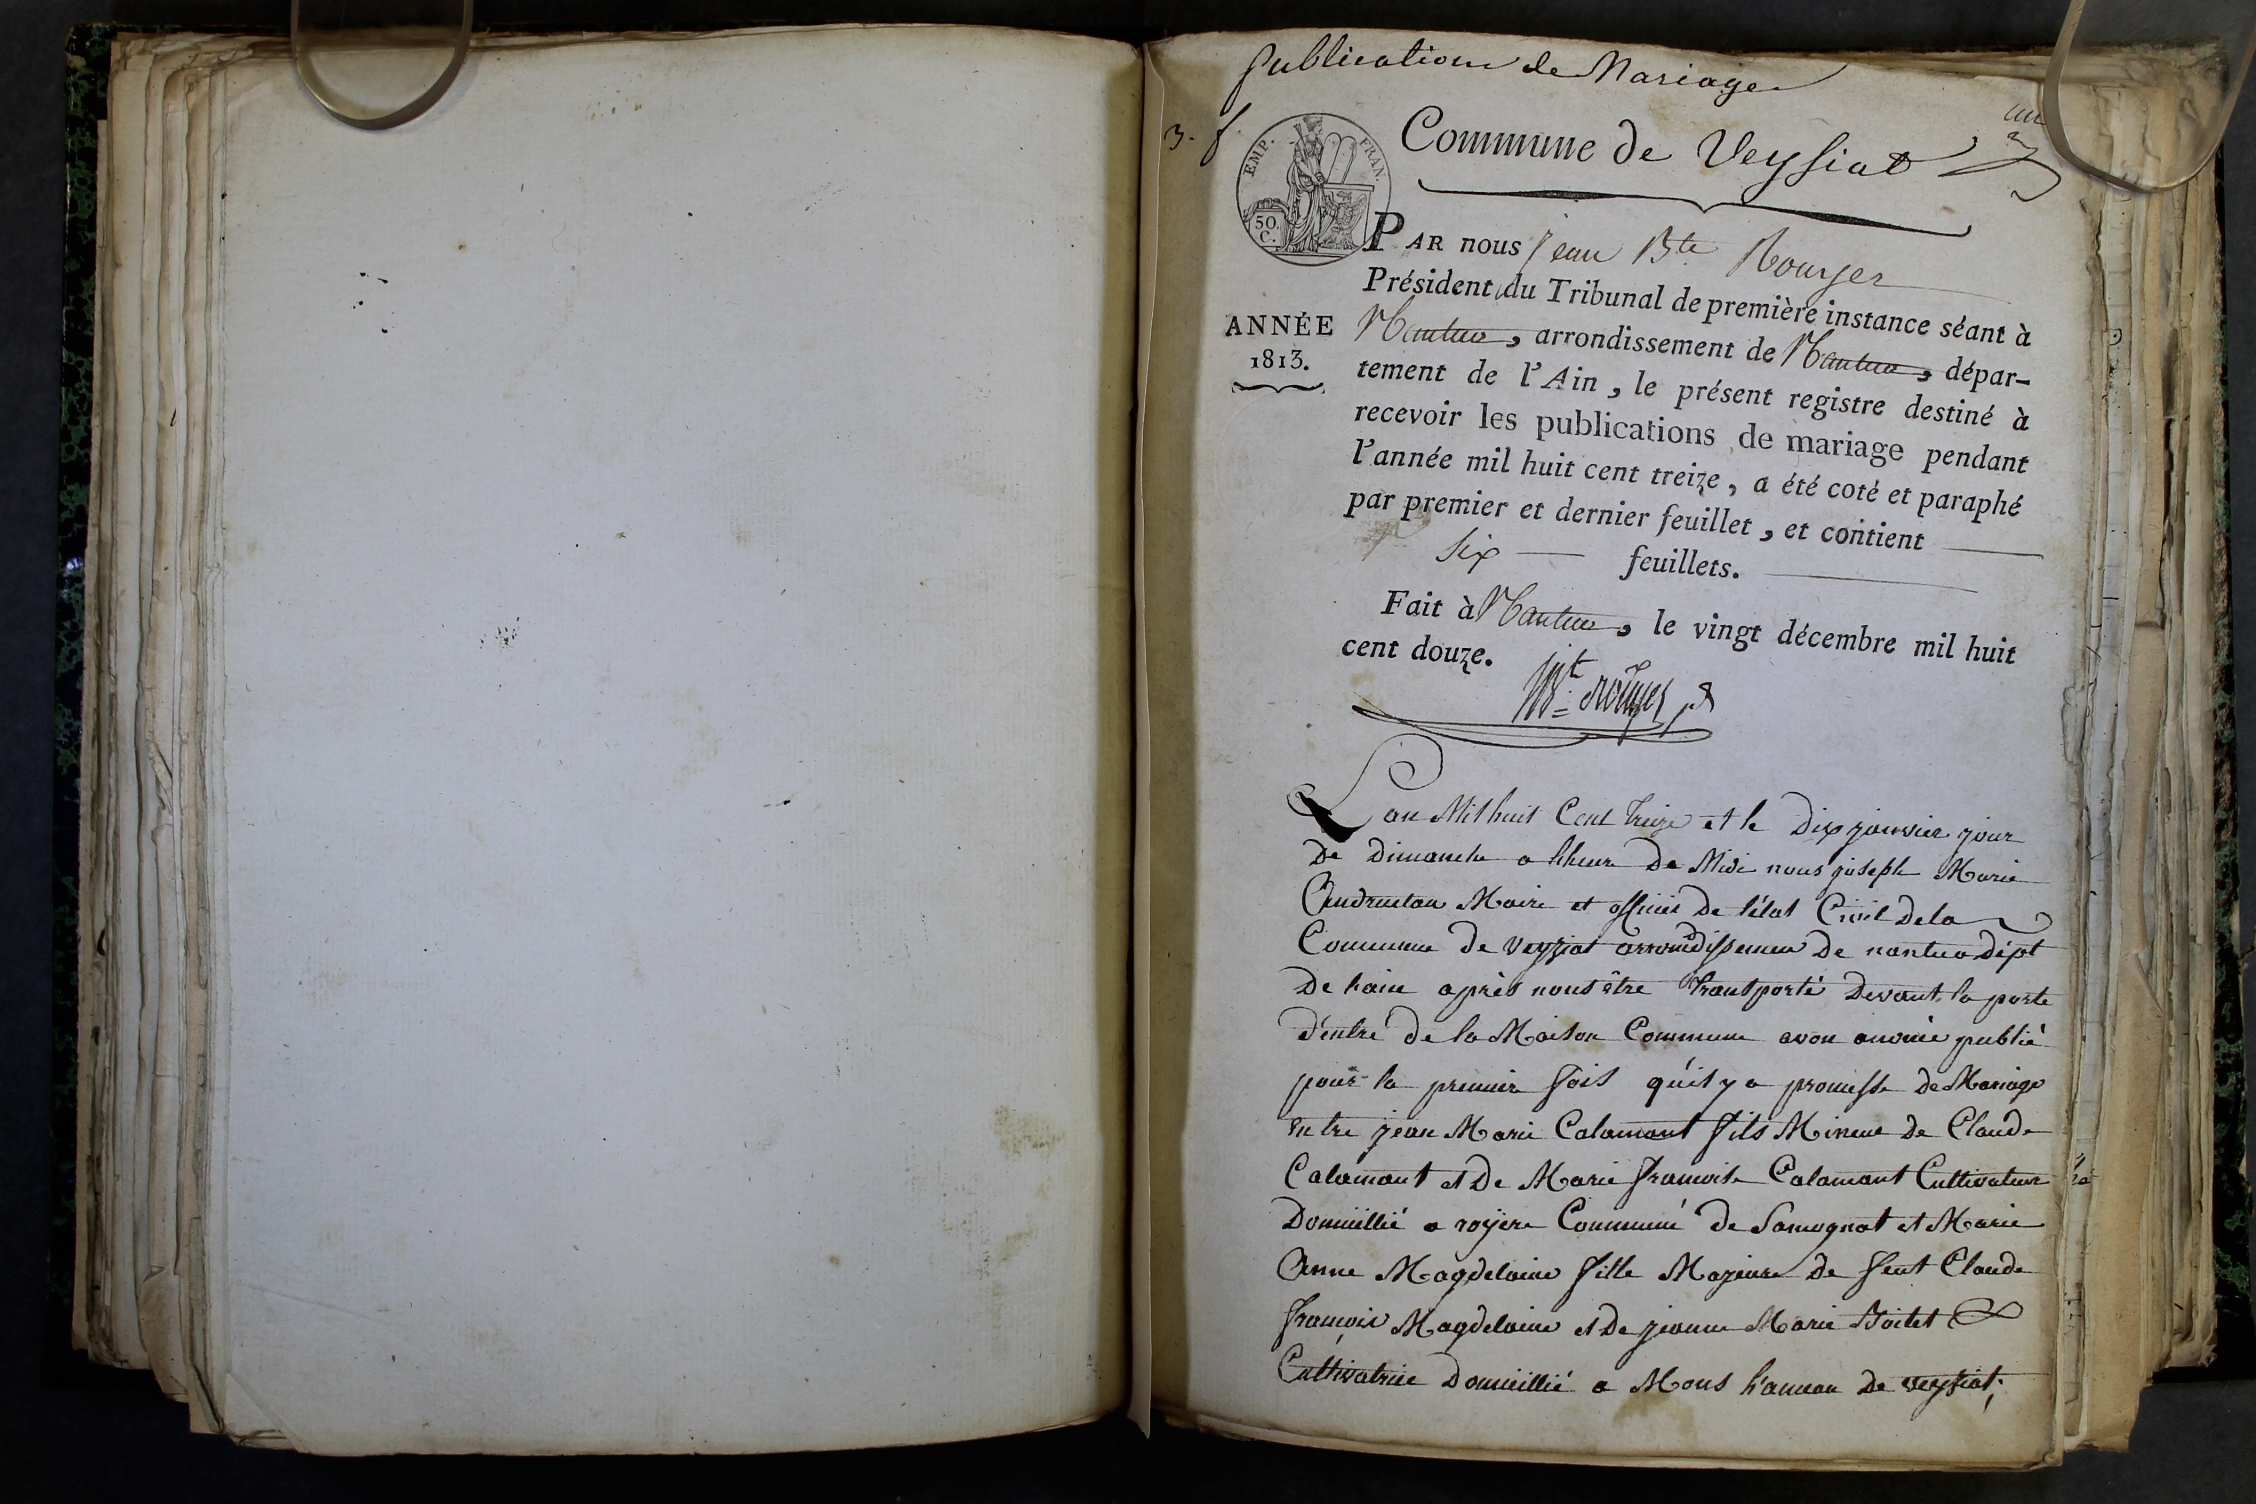 Publications de Mariage
3. f.
un
EMP. FRAN.
50. C.
Commune de Veysiat
PAR nous Jean Bte Rouyer
Président du Tribunal de première instance séant à
Nantua, arrondissement de Nantua, dépar-
tement de l'Ain, le présent registre destiné à
recevoir les publications de mariage pendant
l'année mil huit cent treize, a été coté et paraphé
par premier et dernier feuillet, et contient
six feuillets.
ANNÉE
1813.
Fait à Nantua, le vingt décembre mil huit
cent douze.
Bt. Rouyer
L'an Mil huit Cent treize et le Dix janvier jour
De Dimanche a lheure De Midi nous joseph Marie
Maire et officier De l'état Civil Dela
Commune De veyziat arrondissemen De nantua dépt
De lain après nous être transporté Devant la porte
d'entré De la Maison Commune avon anonie publié
pour la premier fois qu'il y a promesse De Mariage
Entre jean Marie Calamant fils Mineur De Claude
Calamant et De Marie francoise Calamant Cultivateur
Domicillié a royere Communé De Samognat et Marie
Anne Magdelaine fille Majeure De feut Claude
francois Magdelaine et De jeanne Marie Boitet
Cultivatrice Domicillié a Mons h'ameau De veysiat;